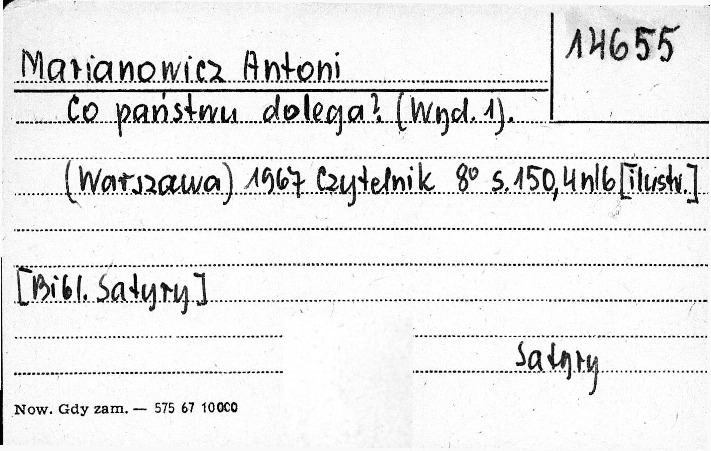 14655
Marianowicz Antoni
Co państwu dolega? (Wyd. 1).
(Warszawa) 1967 Czytelnik 8° s. 150, 4 nlb [ilustr.]
[Bibl. Satyry]
Satyry
Now. Gdy zam. — 575 67 10000